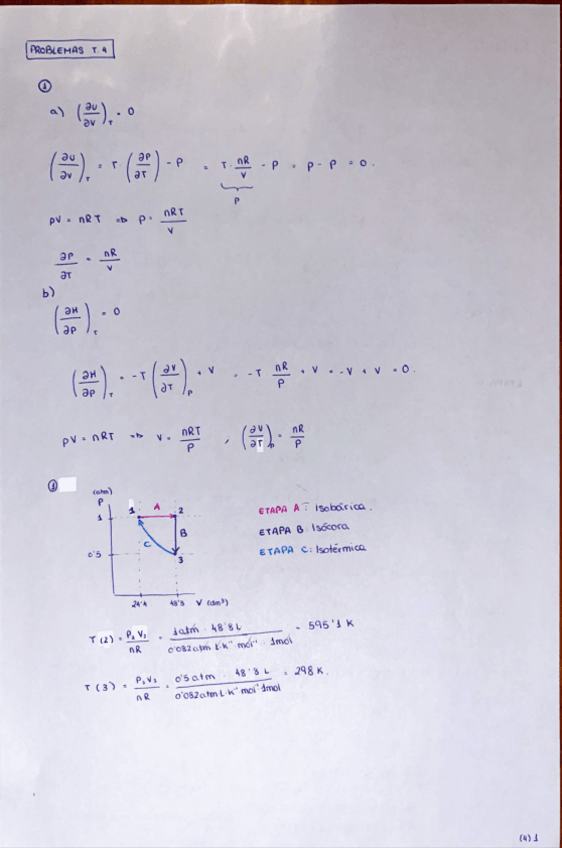 PROBLEMAS T.4
①
a) (∂U/∂V)_T = 0
(∂U/∂V)_T = T · (∂P/∂T) - P = T · nR/V - P = P - P = 0.
P
PV = nRT ⇒ P = nRT/V
∂P/∂T = nR/V
b)
(∂H/∂P)_T = 0
(∂H/∂P)_T = -T (∂V/∂T)_P + V = -T nR/P + V = -V + V = 0.
PV = nRT ⇒ V = nRT/P , (∂V/∂T)_P = nR/P
①
(atm)
P
1
0'5
1 A 2
B
C
3
24'4 48'8 V (dm³)
ETAPA A: Isobárica.
ETAPA B: Isócora
ETAPA C: Isotérmica
T(2) = P₂V₂/nR = 1atm · 48'8L / 0'082atm·L·K⁻¹·mol⁻¹·1mol = 595'1 K
T(3) = P₃V₃/nR = 0'5atm · 48'8L / 0'082atm·L·K⁻¹ mol⁻¹ 1mol = 298 K.
(4) 1